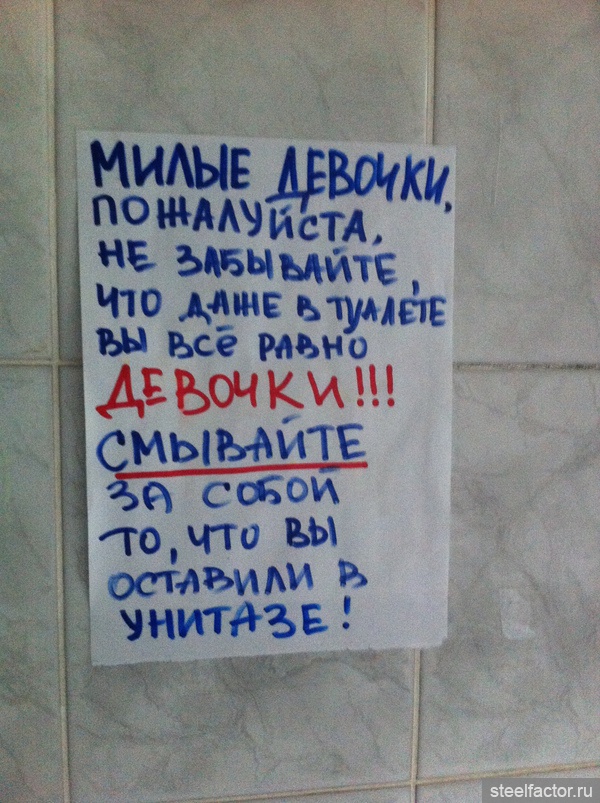 МИЛЫЕ ДЕВОЧКИ,
ПОЖАЛУЙСТА,
НЕ ЗАБЫВАЙТЕ,
ЧТО ДАЖЕ В ТУАЛЕТЕ
ВЫ ВСЁ РАВНО
ДЕВОЧКИ!!!
СМЫВАЙТЕ
ЗА СОБОЙ
ТО, ЧТО ВЫ
ОСТАВИЛИ В
УНИТАЗЕ!
steelfactor.ru